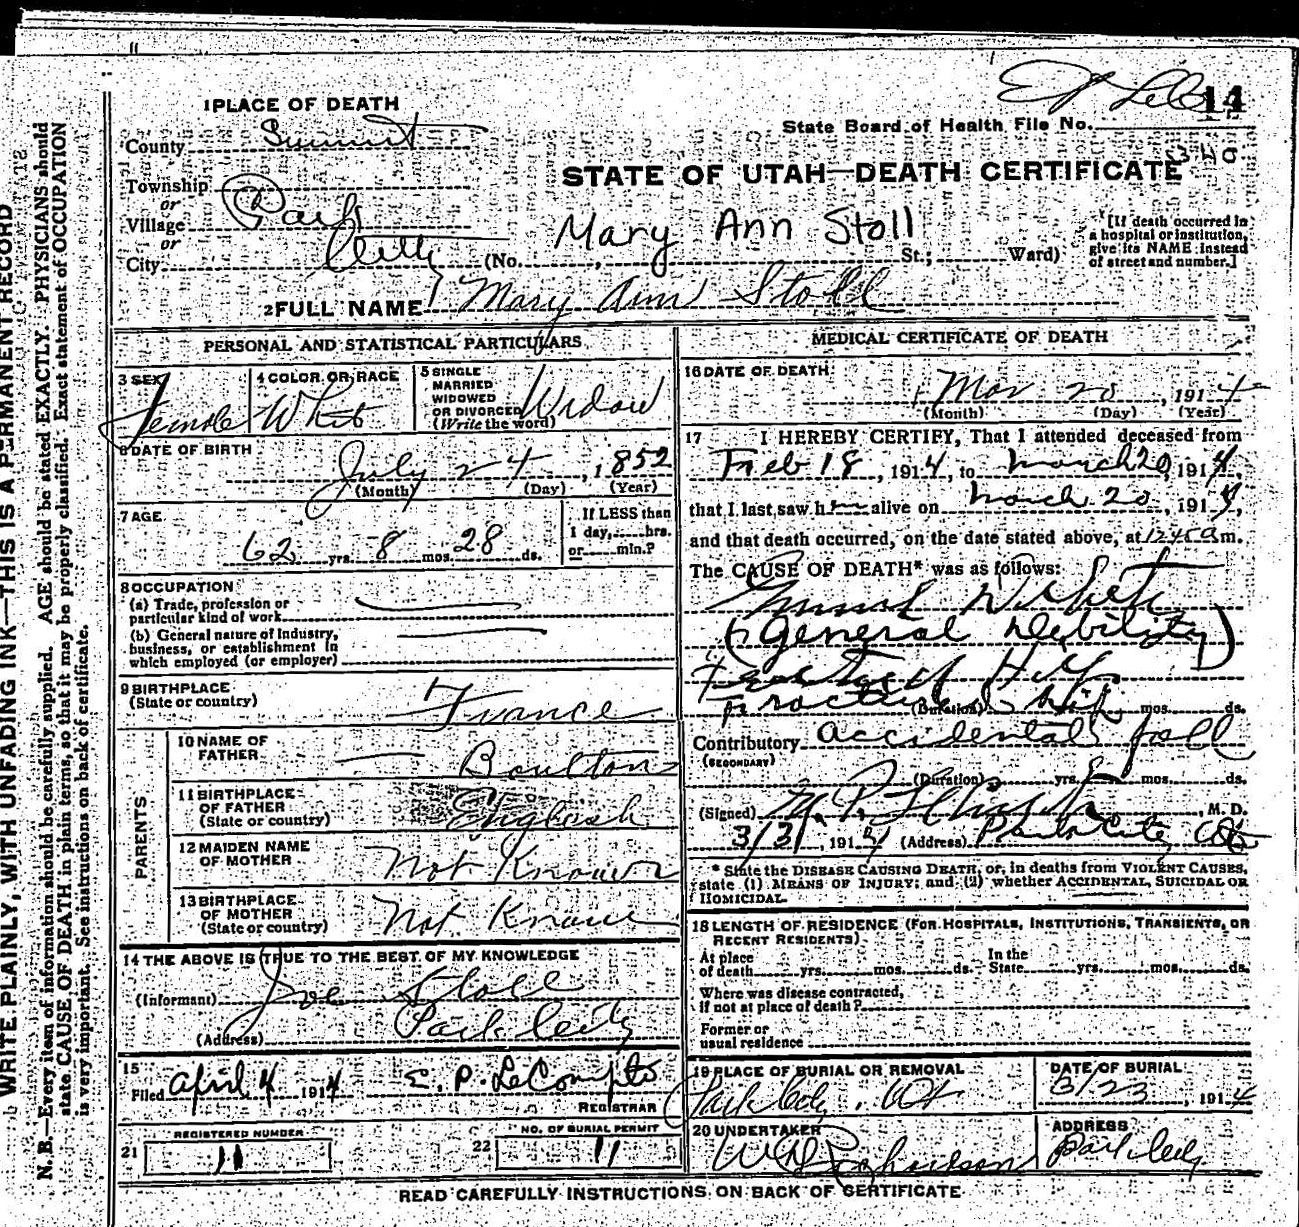 1 PLACE OF DEATH
County Summit
State Board of Health File No. 14
340
STATE OF UTAH—DEATH CERTIFICATE
Township
or
Village Park
or
City City
Mary Ann Stoll
(No. , St.; Ward)
[If death occurred in
a hospital or institution,
give its NAME instead
of street and number.]
2 FULL NAME Mary Ann Stoll
PERSONAL AND STATISTICAL PARTICULARS
3 SEX Female
4 COLOR OR RACE White
5 SINGLE
MARRIED
WIDOWED
OR DIVORCED
(Write the word) Widow
6 DATE OF BIRTH
July 24, 1852
(Month) (Day) (Year)
7 AGE
62 yrs. 8 mos. 28 ds.
If LESS than
1 day, hrs.
or min.?
8 OCCUPATION
(a) Trade, profession or
particular kind of work
(b) General nature of industry,
business, or establishment in
which employed (or employer)
9 BIRTHPLACE
(State or country) France
PARENTS
10 NAME OF
FATHER — Boulton
11 BIRTHPLACE
OF FATHER
(State or country) English
12 MAIDEN NAME
OF MOTHER Not Known
13 BIRTHPLACE
OF MOTHER
(State or country) Not Known
14 THE ABOVE IS TRUE TO THE BEST OF MY KNOWLEDGE
(Informant) Joe Stoll
(Address) Park City
15
Filed april 4 1914 E. P. LeCompte
REGISTRAR
21 REGISTERED NUMBER
11
22 NO. OF BURIAL PERMIT
11
MEDICAL CERTIFICATE OF DEATH
16 DATE OF DEATH
Mar 20, 1914
(Month) (Day) (Year)
17 I HEREBY CERTIFY, That I attended deceased from
Feb 18, 1914, to march 20, 1914,
that I last saw h alive on march 20, 1914,
and that death occurred, on the date stated above, at 1245 a m.
The CAUSE OF DEATH* was as follows:
(General Debility)
Fractured Hip
(Duration) yrs. mos. ds.
Contributory accidental fall
(SECONDARY)
(Duration) yrs. mos. ds.
(Signed) M. D.
3/31, 1914 (Address) Park City Ut
* State the DISEASE CAUSING DEATH, or, in deaths from VIOLENT CAUSES,
state (1) MEANS OF INJURY; and (2) whether ACCIDENTAL, SUICIDAL OR
HOMICIDAL.
18 LENGTH OF RESIDENCE (FOR HOSPITALS, INSTITUTIONS, TRANSIENTS, OR
RECENT RESIDENTS)
At place In the
of death yrs. mos. ds. State yrs. mos. ds.
Where was disease contracted,
if not at place of death?
Former or
usual residence
19 PLACE OF BURIAL OR REMOVAL
Park City, Ut
DATE OF BURIAL
3/23, 1914
20 UNDERTAKER
ADDRESS
Park City
READ CAREFULLY INSTRUCTIONS ON BACK OF CERTIFICATE
WRITE PLAINLY, WITH UNFADING INK—THIS IS A PERMANENT RECORD
N. B.—Every item of information should be carefully supplied. AGE should be stated EXACTLY. PHYSICIANS should
state CAUSE OF DEATH in plain terms, so that it may be properly classified. Exact statement of OCCUPATION
is very important. See instructions on back of certificate.